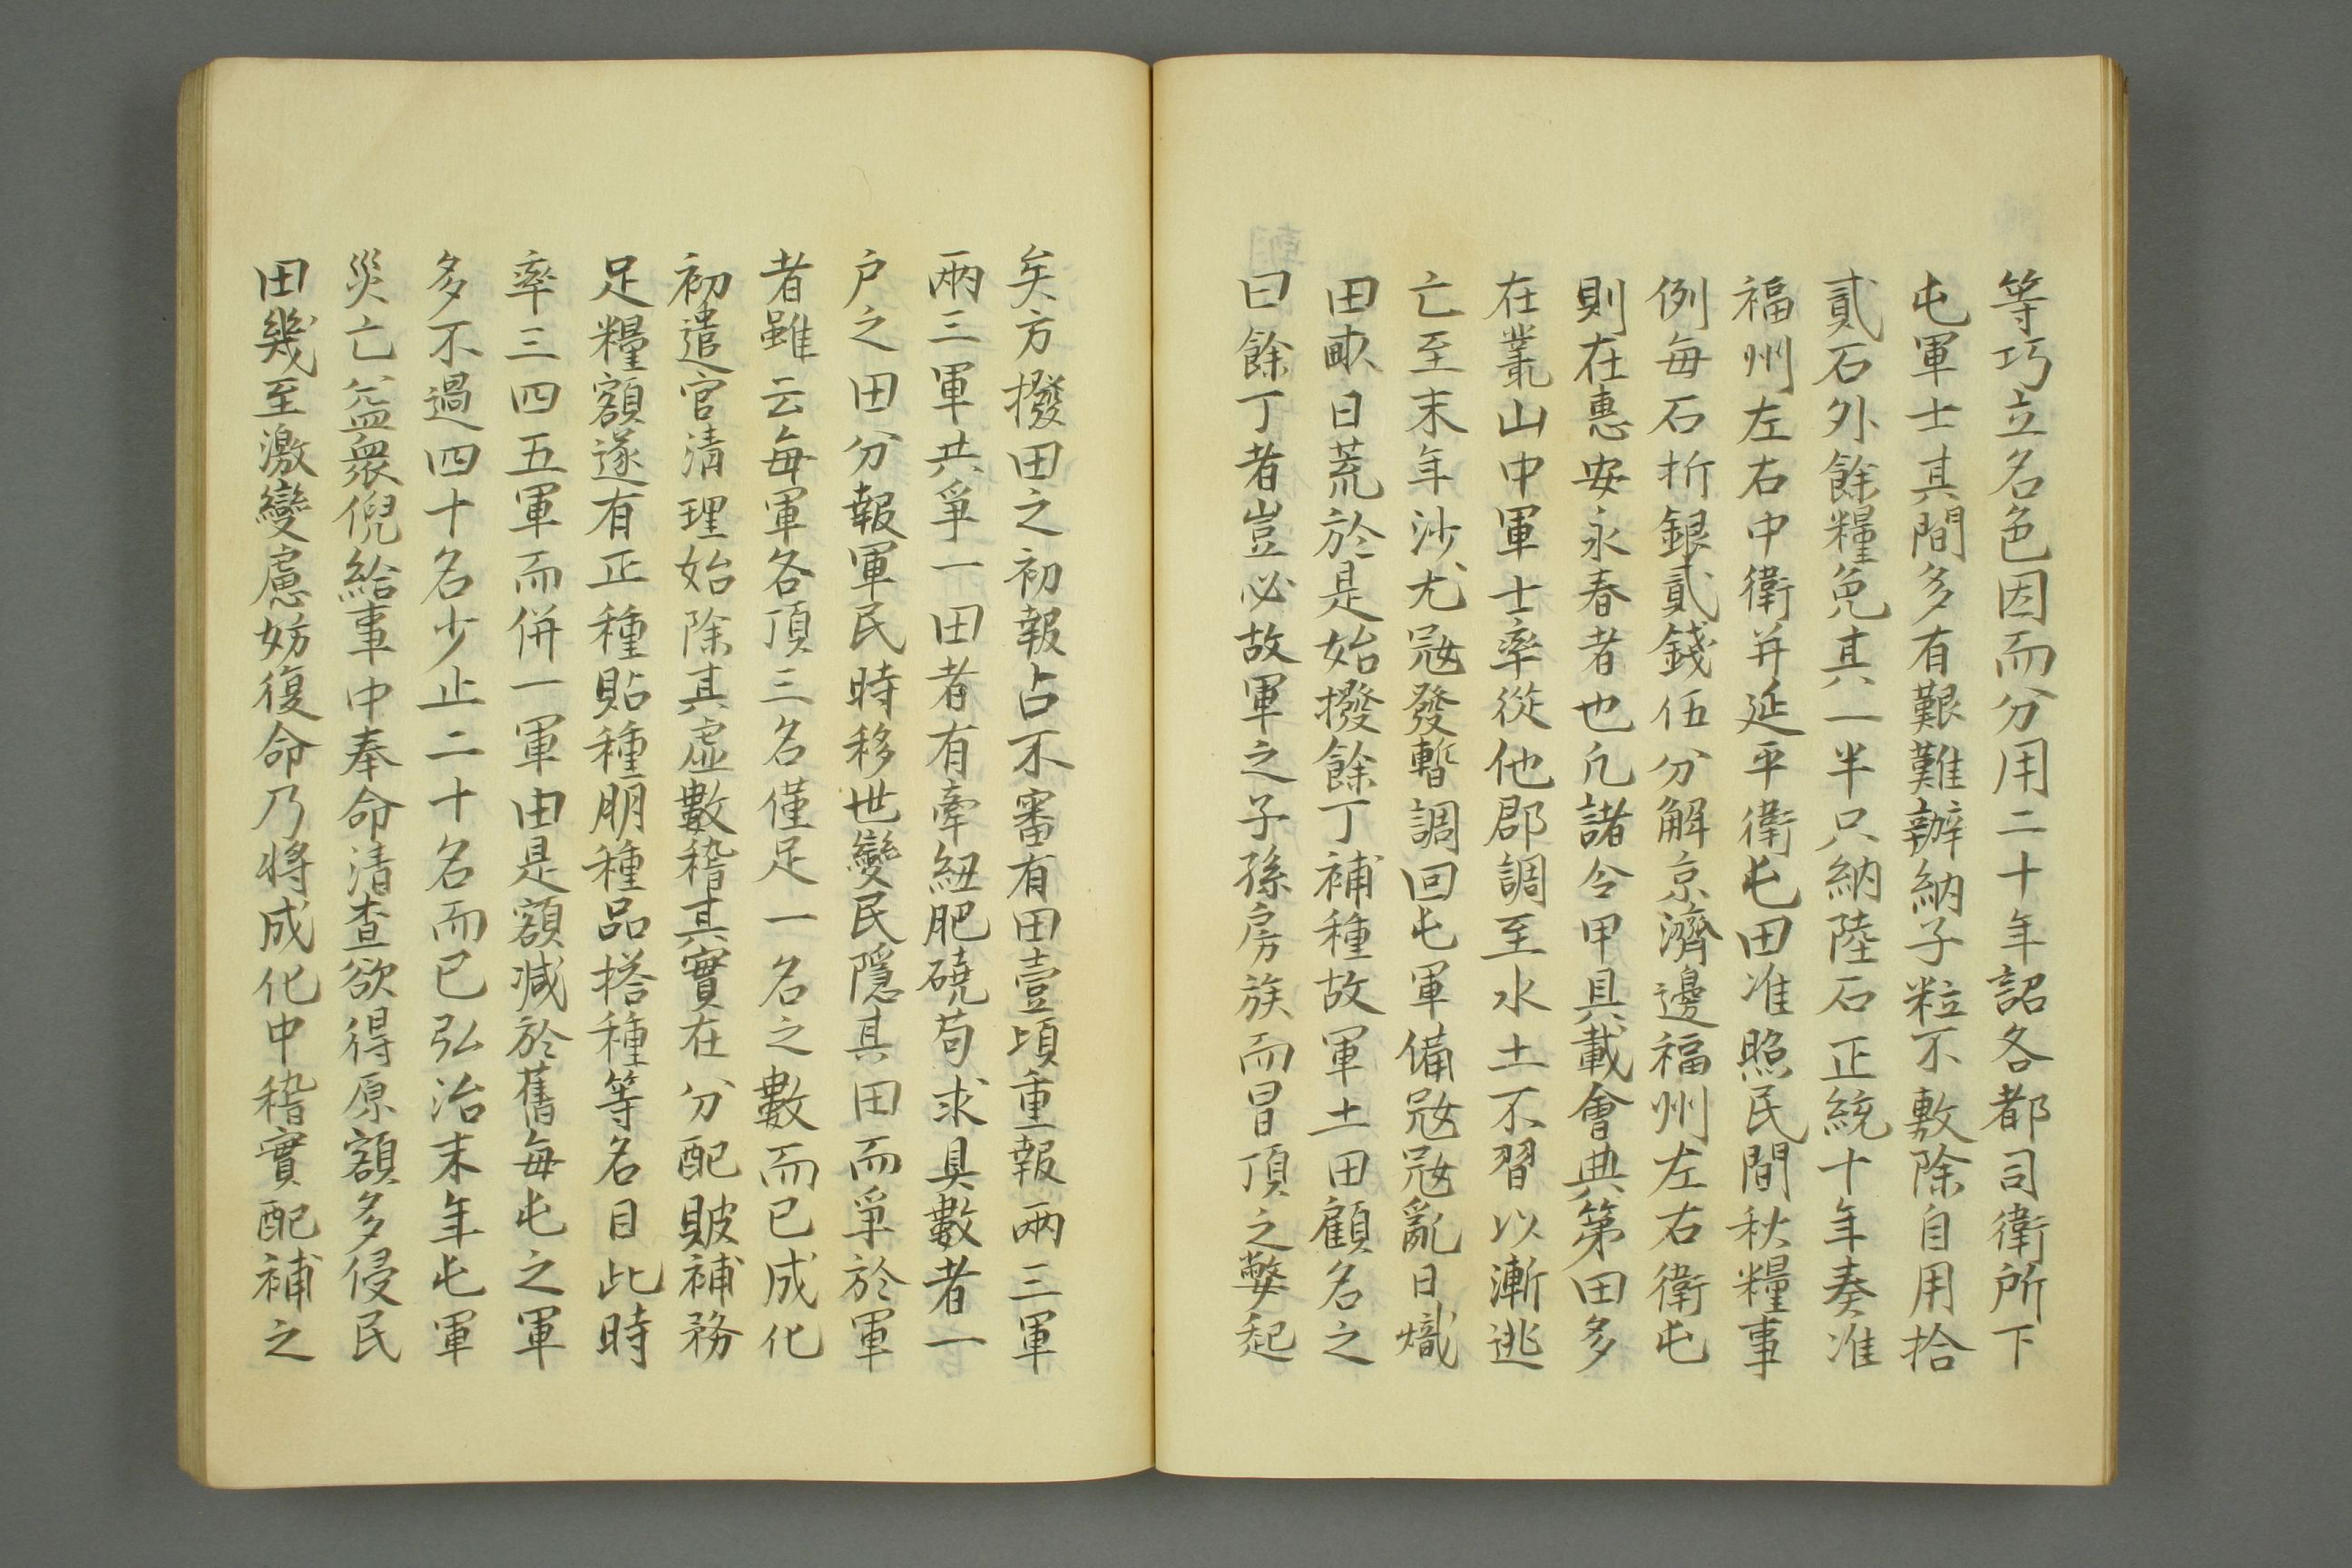 等巧立名色因而分用二十年詔各都司衛所下
屯軍士其間多有艱難辦納子粒不敷除自用拾
貳石外餘糧免其一半只納陸石正統十年奏准
福州左右中衛并延平衛屯田准照民間秋糧事
例每石折銀貳錢伍分解京濟邊福州左右衛屯
則在惠安永春者也凡諸令甲具載會典第田多
在叢山中軍士率從他郡調至水土不習以漸逃
亡至末年沙尤冦發暫調回屯軍備冦冦亂日熾
田畝日荒於是始撥餘丁補種故軍土田顧名之
曰餘丁者豈必故軍之子孫房族而冒頂之弊起
矣方撥田之初報占不審有田壹頃重報兩三軍
兩三軍共爭一田者有牽紐肥磽苟求具數者一
户之田分報軍民時移世變民隱其田而爭於軍
者雖云每軍各頂三名僅足一名之數而已成化
初遣官清理始除其虛數稽其實在分配貱補務
足糧額遂有正種貼種朋種品搭種等名目此時
率三四五軍而併一軍由是額減於舊每屯之軍
多不過四十名少止二十名而已弘治末年屯軍
災亡益衆倪給事中奉命清查欲得原額多侵民
田幾至激變慮妨復命乃將成化中稽實配補之